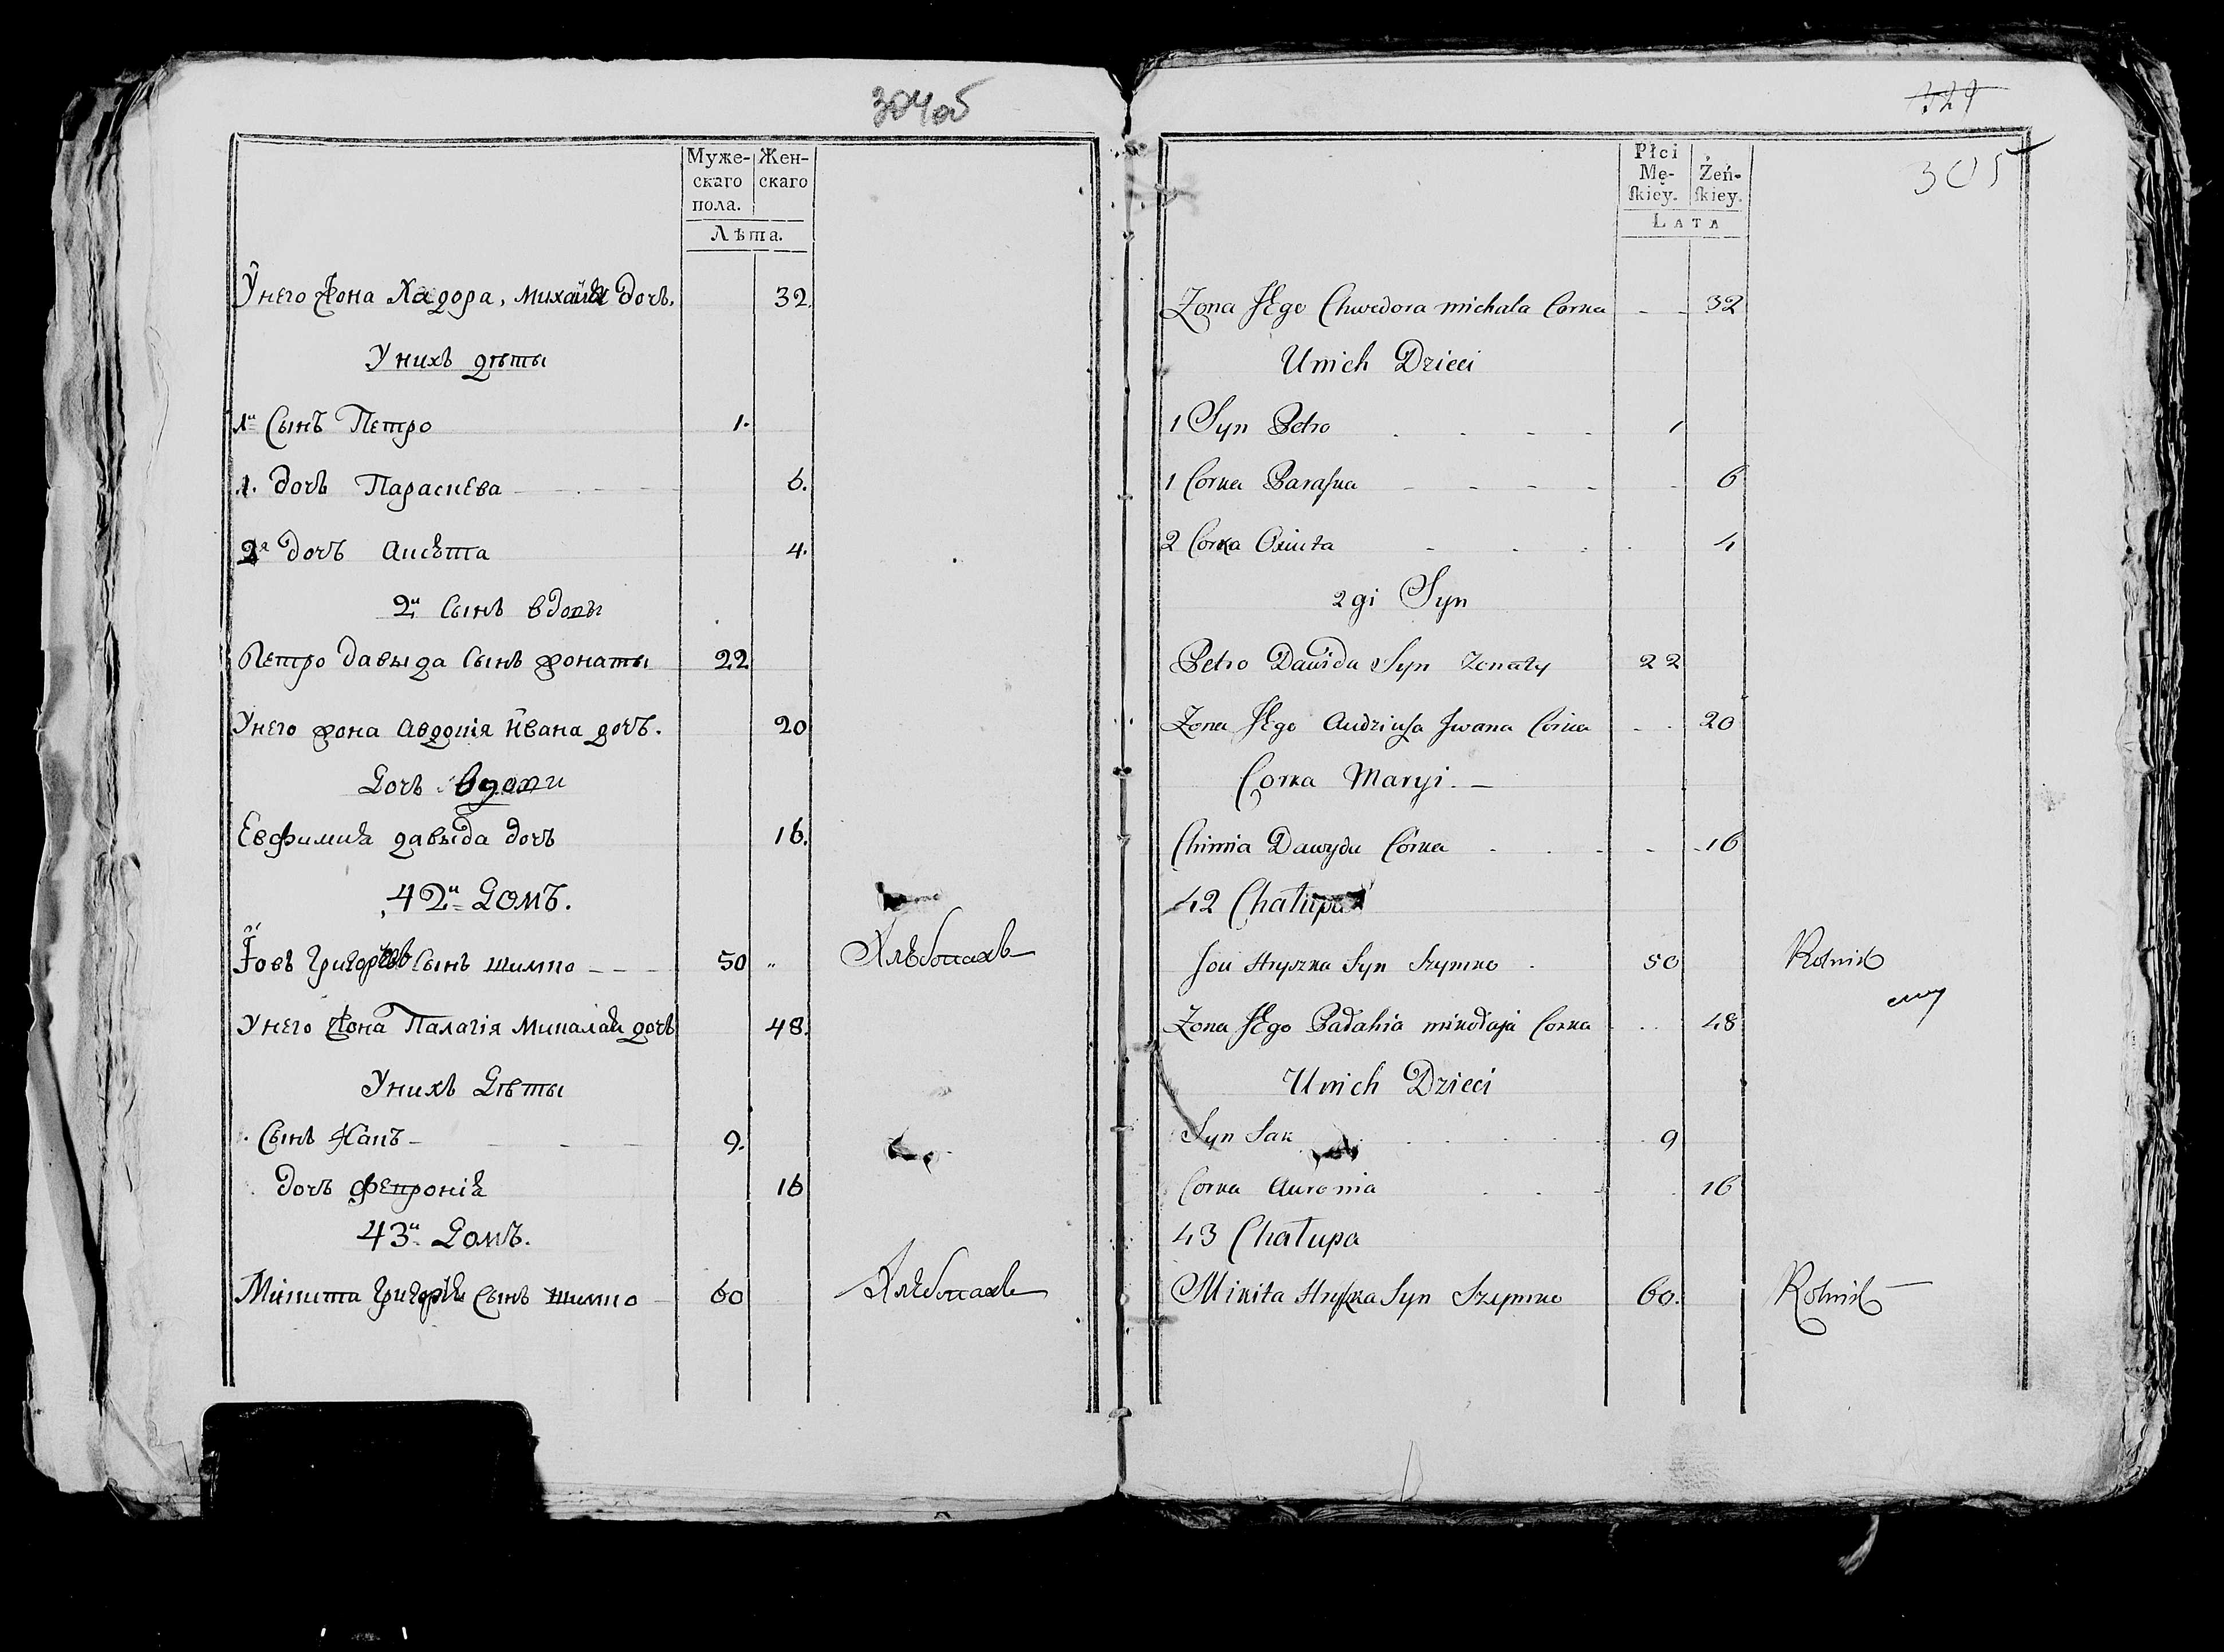 304об
Муже- Жен-
скаго скаго
пола.
Лѣта.
Унего жона Хадора, Михайла дочь. 32.
Унихъ дѣты
1й Сынъ Петро 1.
1. дочь Параскева 6.
2я дочь Аксѣта 4.
2й Сынъ вдовы
Петро давыда Сынъ жонаты 22
Унего жона Авдокія Ивана дочъ. 20
Дочъ вдовы
Евфимиа давыда дочъ 16.
42й Домъ.
Іовъ Григоръ Сынъ шимко 50 Хлѣбопахъ
Унего жона Палагія Миколаи дочъ 48.
Унихъ Дѣты
Сынъ 9.
дочъ Фепроніа 16
43й Домъ.
Микита Григоръ Сынъ шимко 60 Хлѣбопахъ
329
305
Płci
Mę- Żeń-
skiey. skiey.
LATA
Zona JEgo Chwedora michała Corka 32
Unich Dzieci
1 Syn Petro 1
1 Corka Paraska 6
2 Corka 4
2gi Syn
Petro Dawida Syn Zonaty 22
Zona JEgo Audziusa Jwana Córka 20
Corka Maryi.
Chimia Dawyda Córka 16
42 Chałupa
Jou Hryszka Syn Szymko 50 Rolnik
Zona JEgo Pałahia mikołaja Corka 48
Unich Dzieci
Syn Sak 9
Corka Auronia 16
43 Chałupa
Mikita Hryszka Syn Szymko 60. Rolnik